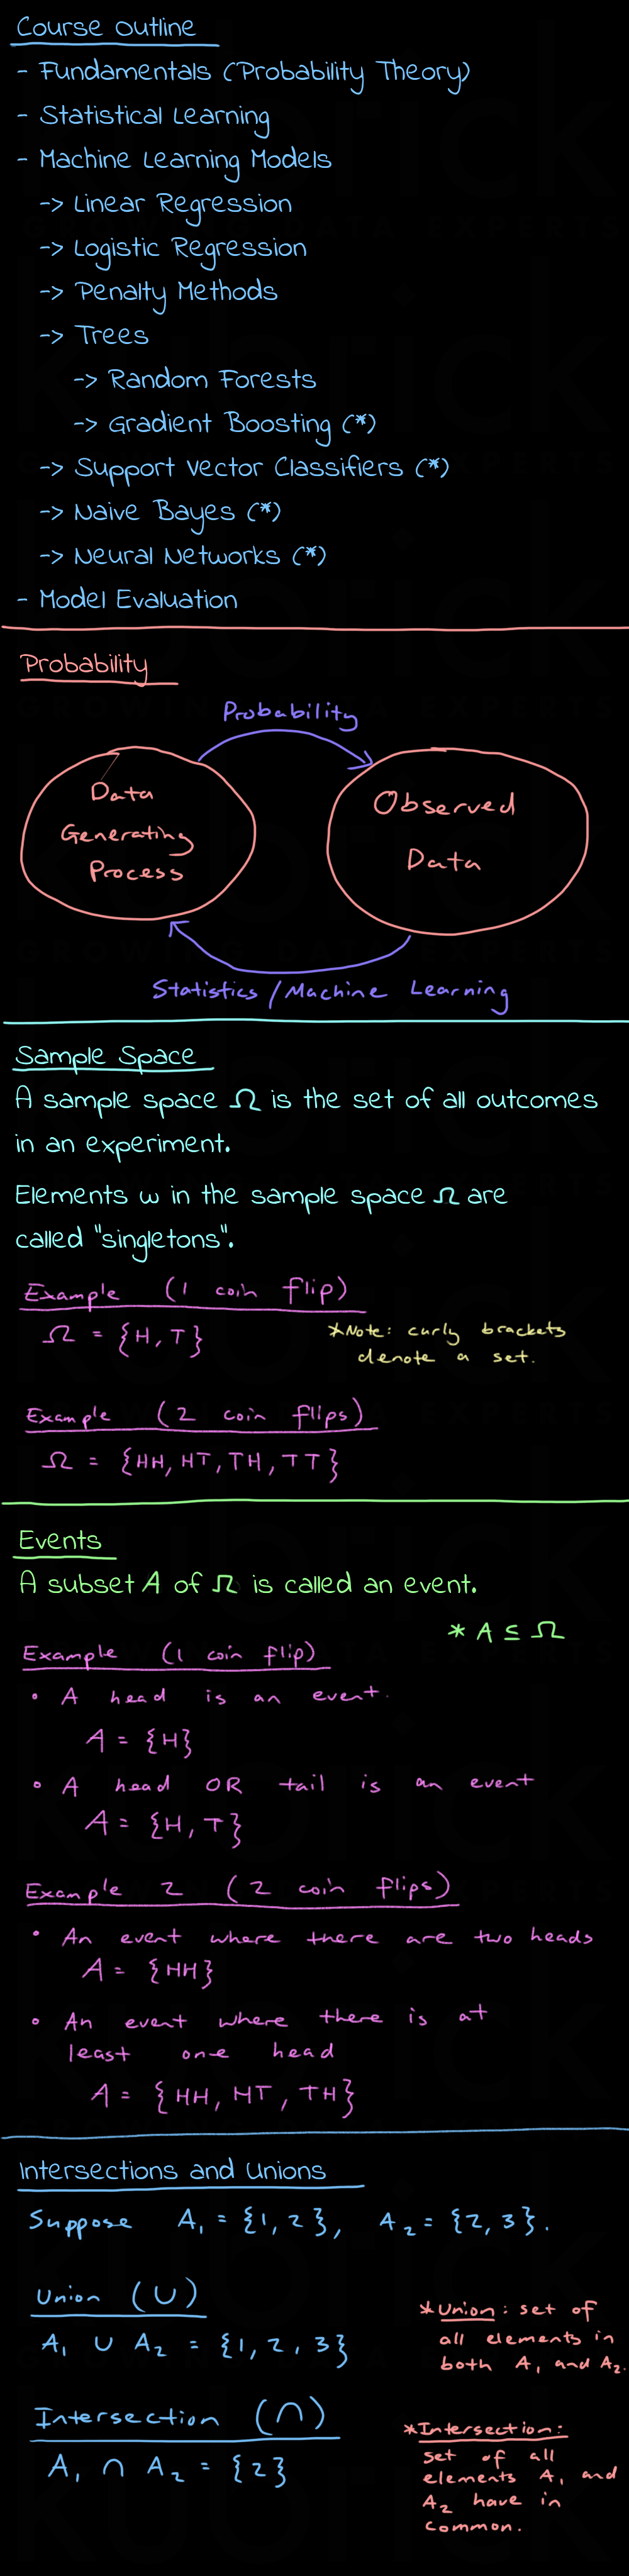 Course Outline
- Fundamentals (Probability Theory)
- Statistical Learning
- Machine Learning Models
-> Linear Regression
-> Logistic Regression
-> Penalty Methods
-> Trees
-> Random Forests
-> Gradient Boosting (*)
-> Support Vector Classifiers (*)
-> Naive Bayes (*)
-> Neural Networks (*)
- Model Evaluation
Probability
Probability
Data
Generating
Process
Observed
Data
Statistics / Machine Learning
Sample Space
A sample space Ω is the set of all outcomes
in an experiment.
Elements ω in the sample space Ω are
called "singletons".
Example (1 coin flip)
Ω = {H, T}
*Note: curly brackets
denote a set.
Example (2 coin flips)
Ω = {HH, HT, TH, TT}
Events
A subset A of Ω is called an event.
* A ⊆ Ω
Example (1 coin flip)
• A head is an event.
A = {H}
• A head OR tail is an event
A = {H, T}
Example 2 (2 coin flips)
• An event where there are two heads
A = {HH}
• An event where there is at
least one head
A = {HH, HT, TH}
Intersections and Unions
Suppose A₁ = {1, 2}, A₂ = {2, 3}.
Union (∪)
A₁ ∪ A₂ = {1, 2, 3}
*Union: set of
all elements in
both A₁ and A₂.
Intersection (∩)
A₁ ∩ A₂ = {2}
*Intersection:
set of all
elements A₁ and
A₂ have in
common.